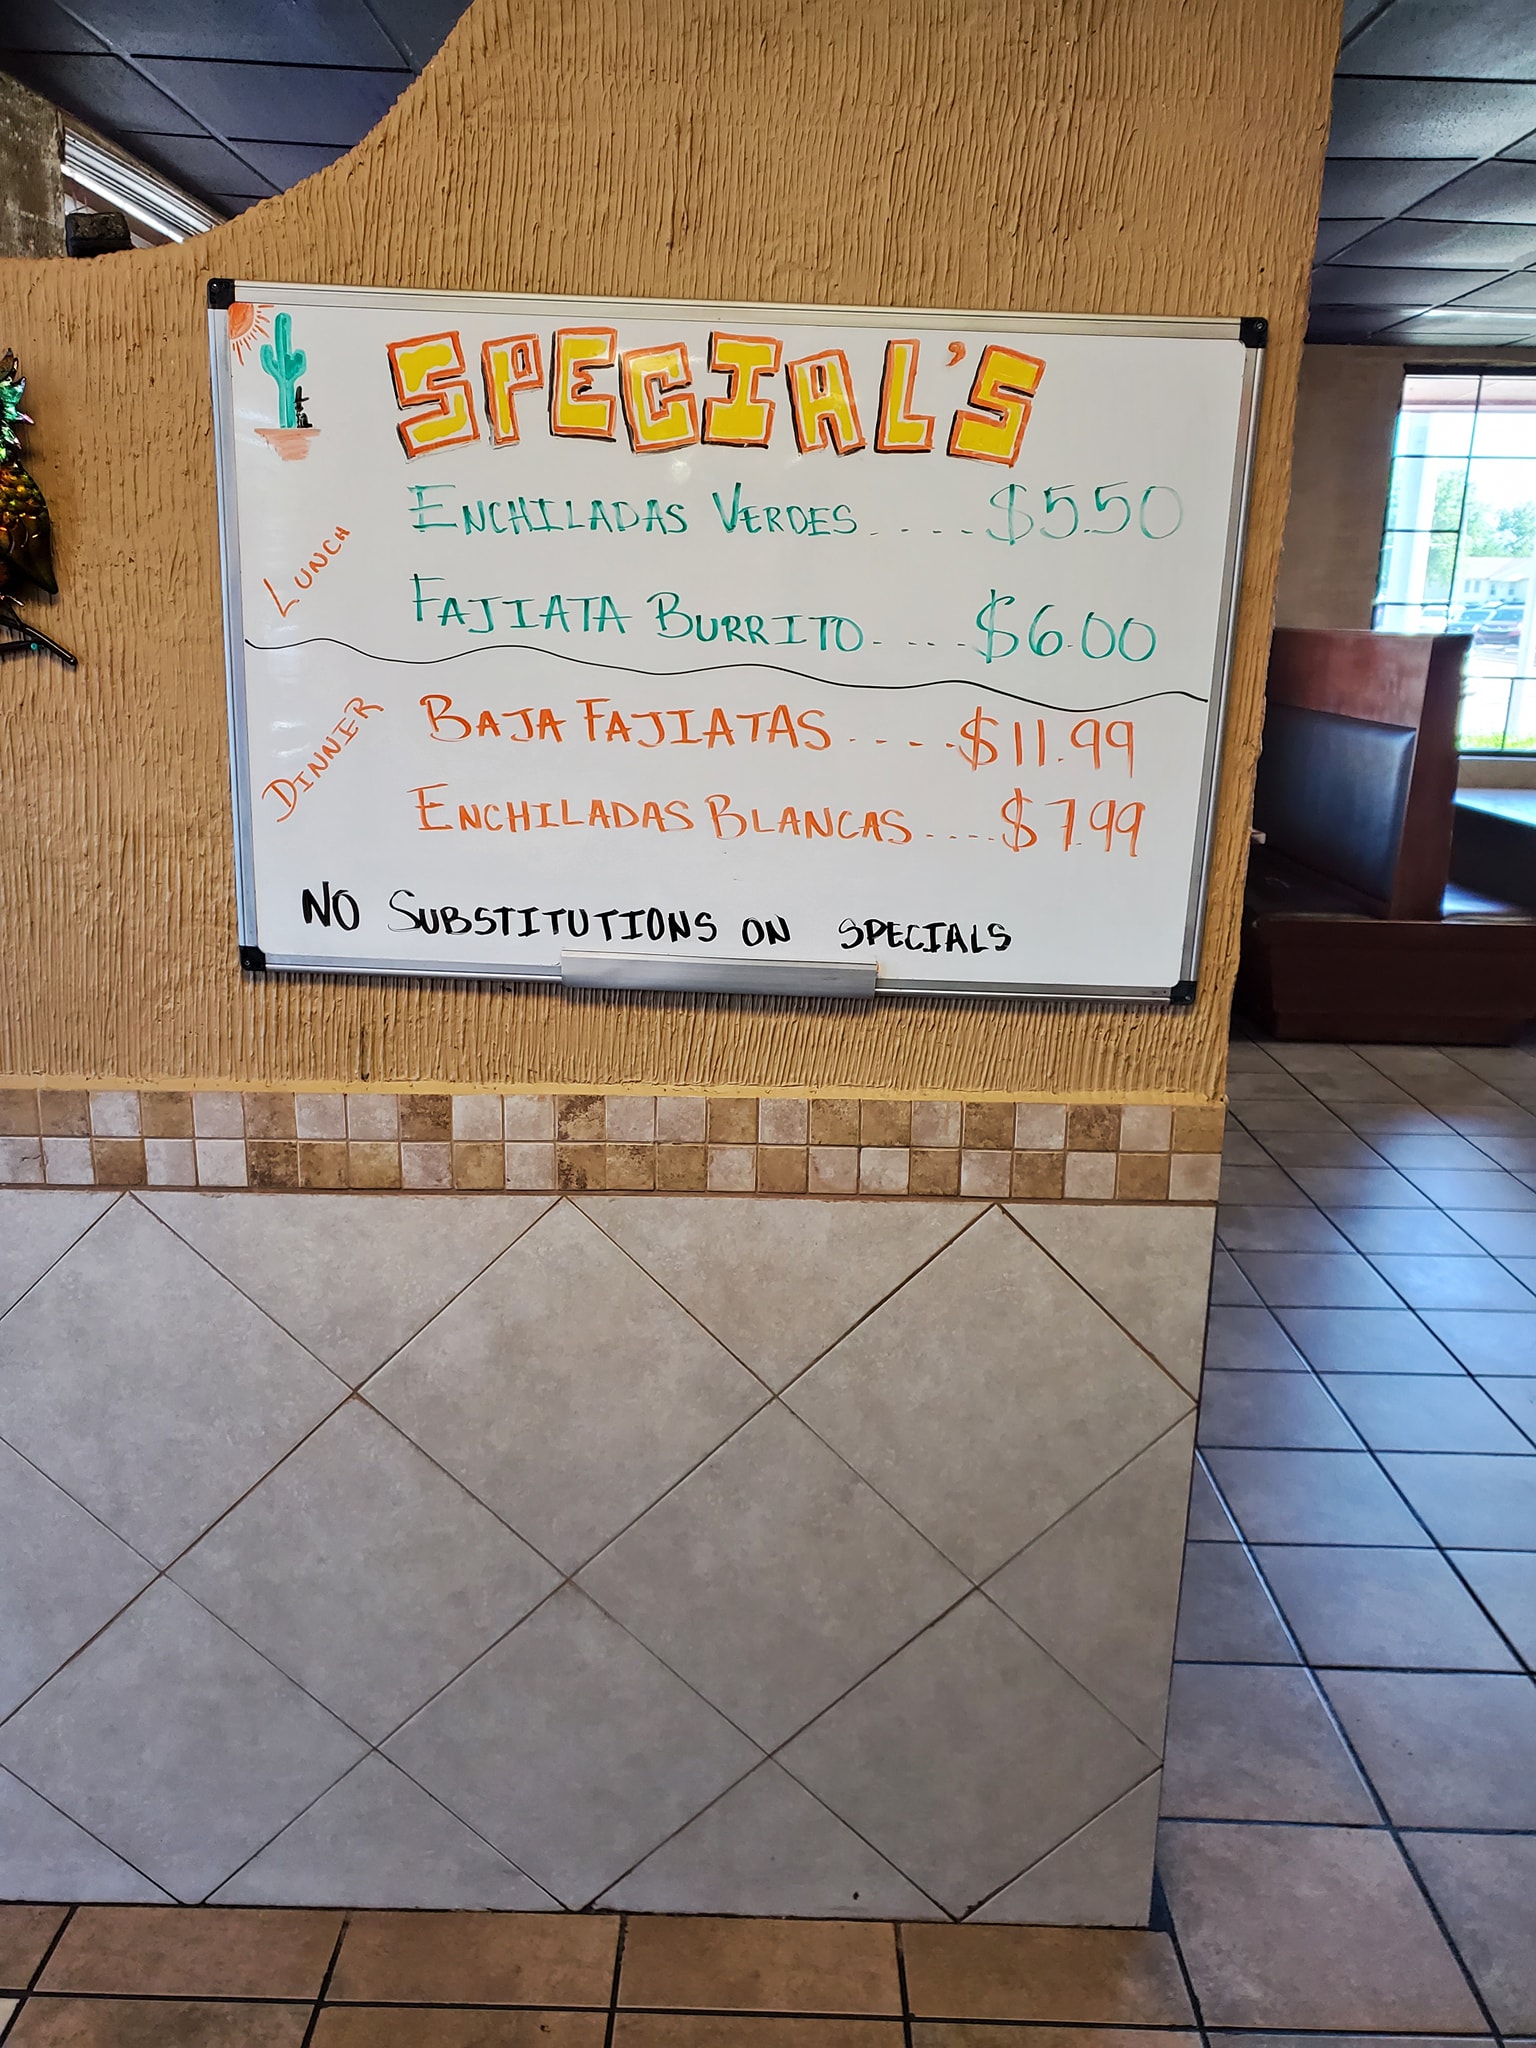 SPECIAL'S
LUNCH
ENCHILADAS VERDES....$5.50
FAJIATA BURRITO....$6.00
DINNER
BAJA FAJIATAS....$11.99
ENCHILADAS BLANCAS....$7.99
NO SUBSTITUTIONS ON SPECIALS